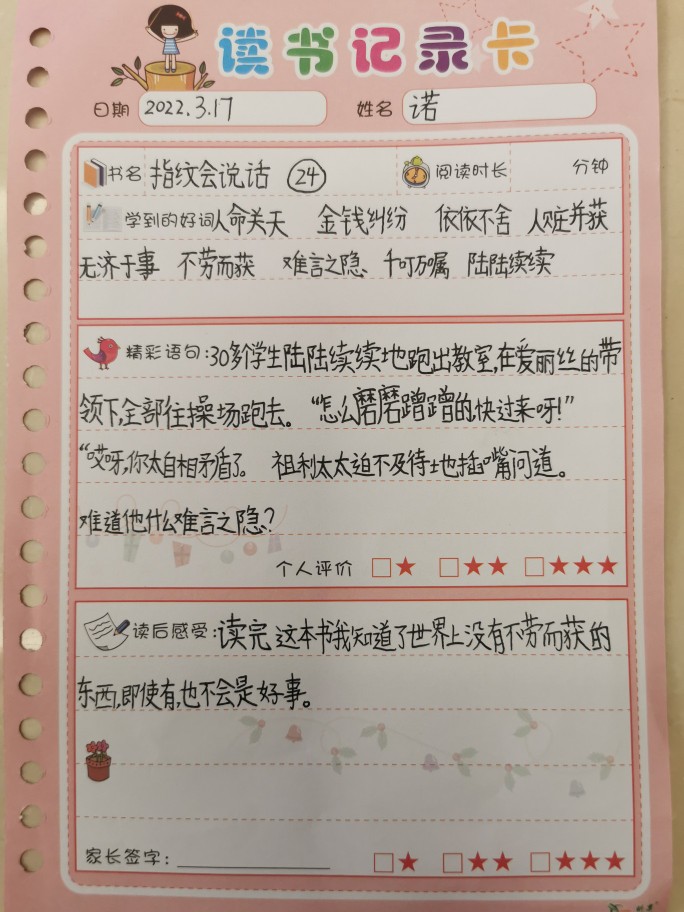 读书记录卡
日期 2022.3.17 姓名 诺
书名 指纹会说话 24 阅读时长 分钟
学到的好词 人命关天 金钱纠纷 依依不舍 人赃并获
无济于事 不劳而获 难言之隐、千叮万嘱 陆陆续续
精彩语句:30多个学生陆陆续续地跑出教室,在爱丽丝的带
领下,全部往操场跑去。“怎么磨磨蹭蹭的,快过来呀!”
“哎呀,你太自相矛盾了。 祖利太太迫不及待地插嘴问道。
难道他什么难言之隐?
个人评价 □★ □★★ □★★★
读后感受:读完这本书我知道了世界上没有不劳而获的
东西,即使有,也不会是好事。
家长签字: □★ □★★ □★★★